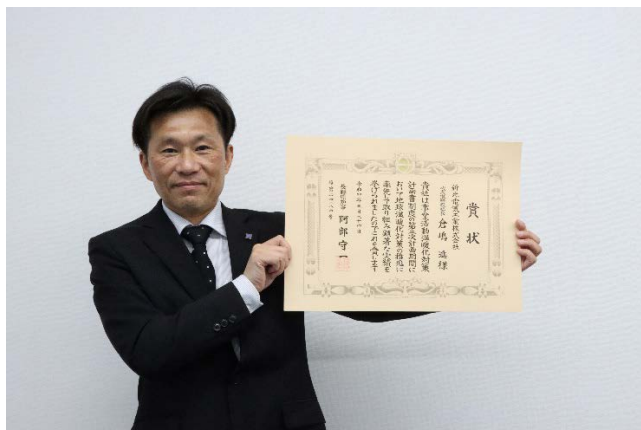 賞状
新光電気工業株式会社
代表取締役社長 倉嶋 進 様
貴社は事業活動温暖化対策
計画書制度の第三次計画期間に
おいて地球温暖化対策の推進に
率先して取り組み顕著な実績を
挙げられましたのでこれを賞します
長野県知事 阿部守一